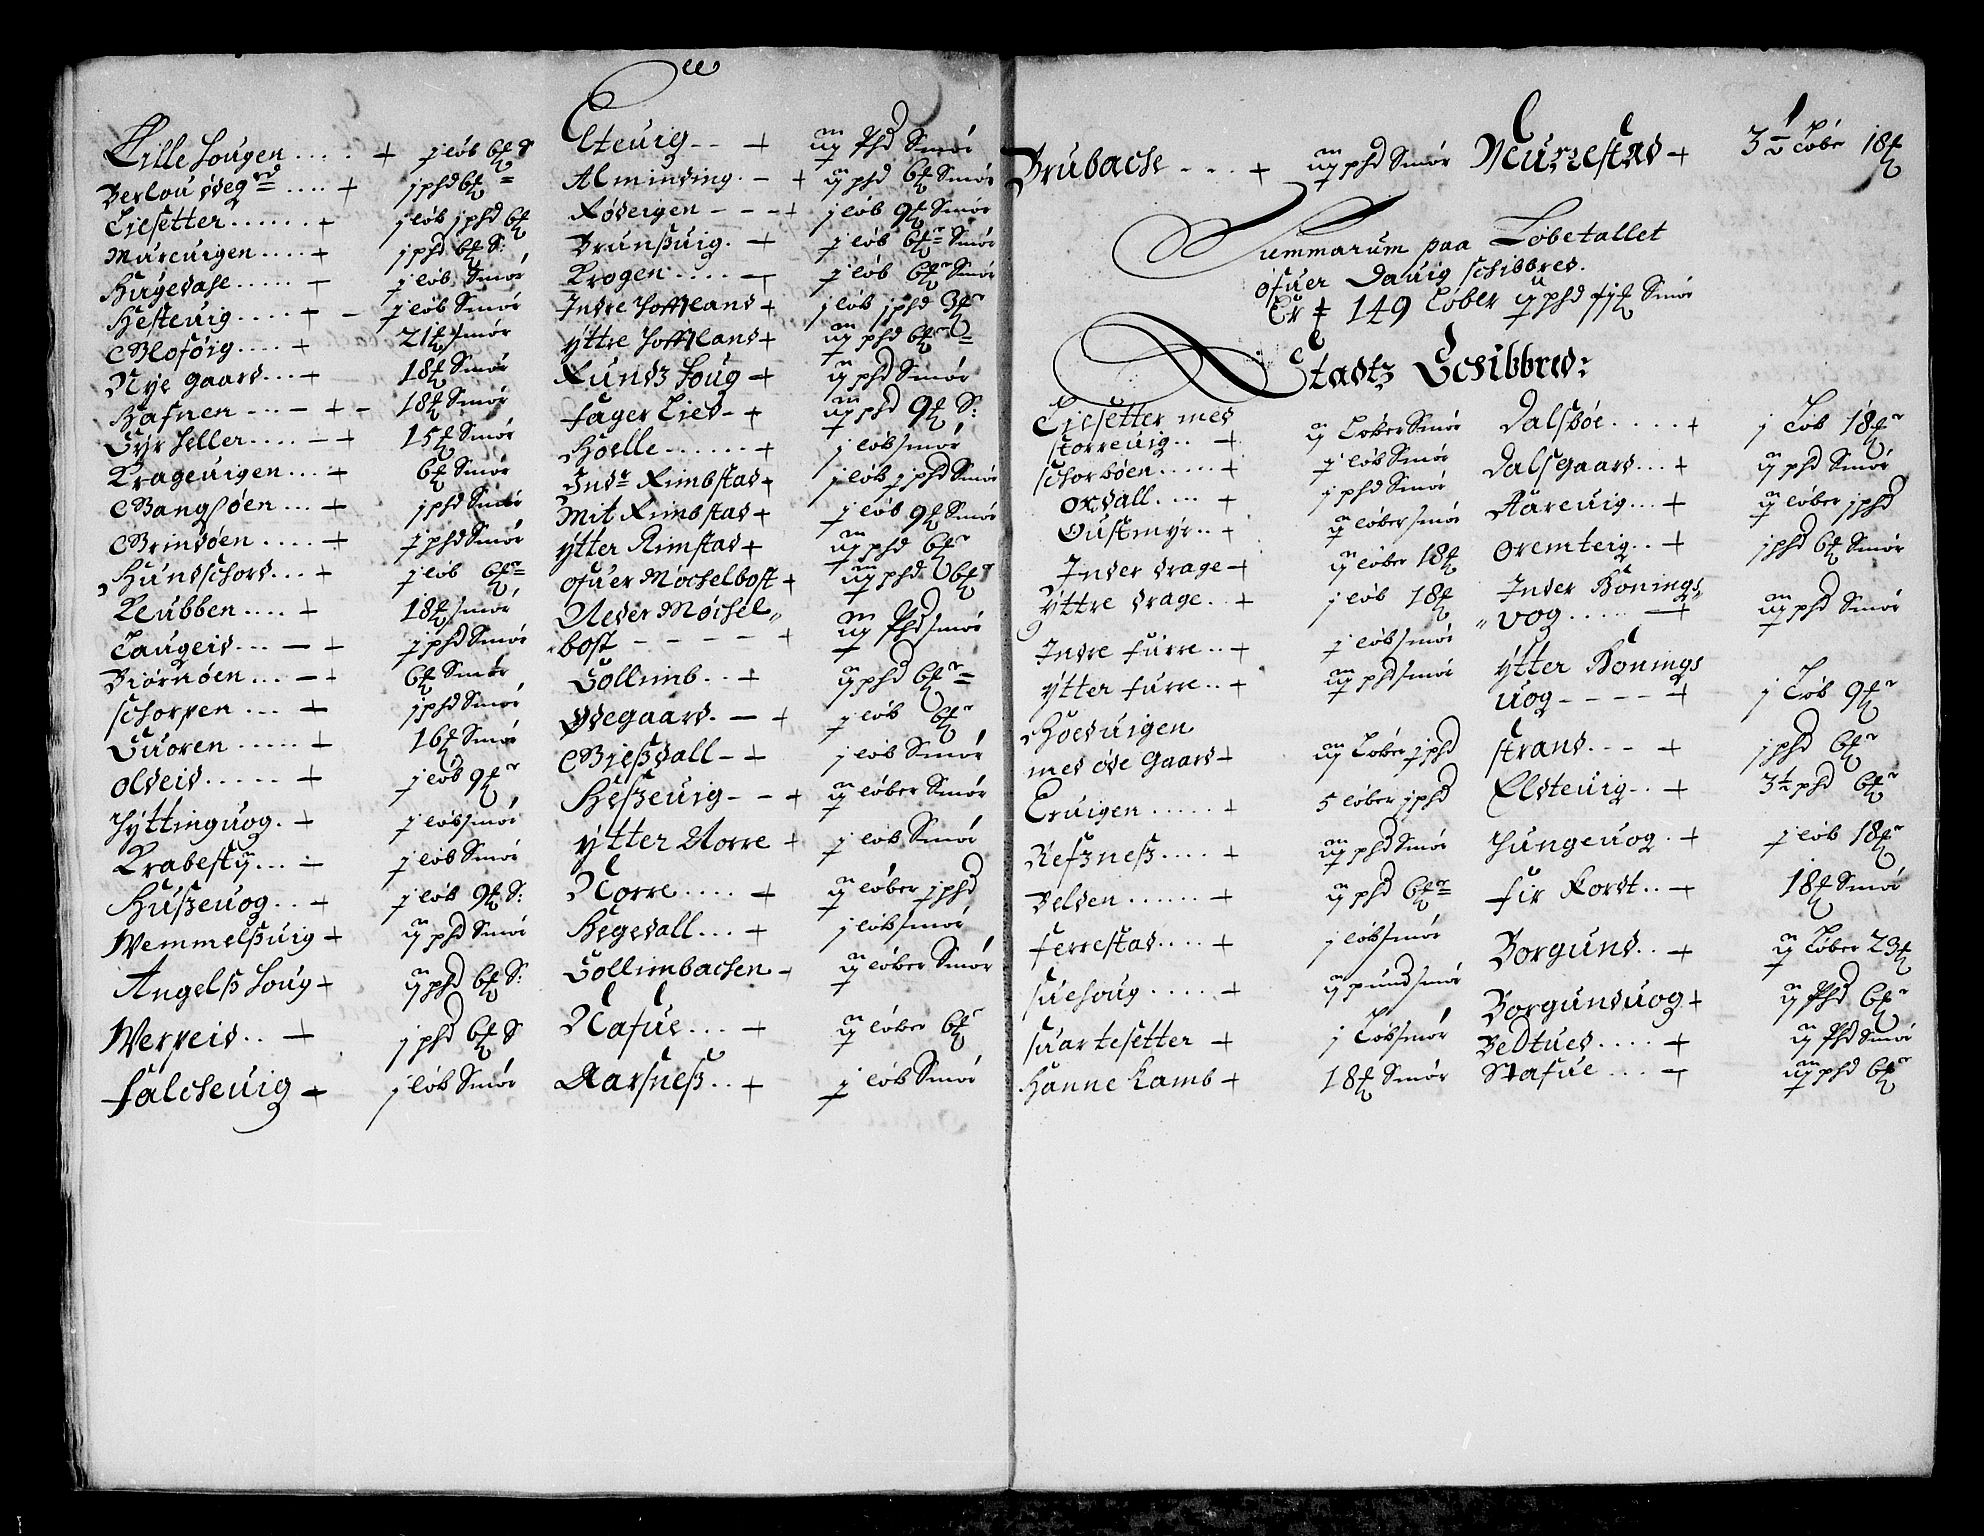 Lille Hougen ..... + j løb 6 ℔ S
Berlou ødeg rd .... + j phd 6 ℔
Liesetter ...... + j løb j phd 6 ℔
Mureuigen .... + j phd 6 ℔ S:
Hugedahl ..... + j løb Smør
Hesteuig .... + - j løb Smør
Blosøig .... + 21 ℔ smør
Nye gaard ... + 18 ℔ Smør
Hafnen ... - + - 18 ℔ Smør
Gyr heller .... - + 15 ℔ Smør
Krageuigen ... + 6 ℔ Smør
Bangsøen ... + j phd Smør
Grindøen .... + j phd Smør
Hundschord ... + j løb 6 ℔
Klubben .... + 18 ℔ smør
Laugeid ... - + j phd Smør
Biørnøen ... - + 6 ℔ Smør
schorpen ... + j phd Smør
Guoren ..... + 16 ℔ Smør
oldeid ..... + j løb 9 ℔
Hÿttinguog . + j løb smør
Krabestij ... + j løb Smør
Hußeuog .. + j løb 9 ℔ S:
Wemmelßuig + ij phd Smør
Angelß Houg + ij phd 6 ℔ S:
Werpeid .. + j phd 6 ℔ S
falcheuig + j løb Smør
Elteuig -- + iij Phd Smør
Alminding - + ij phd 6 ℔ Smør
Rødeigen --- + j løb 9 ℔ Smør
Brunßuig . + j løb 6 ℔ Smør
Krogen .... + j løb 6 ℔ Smør
Indre Hoffland + j løb j phd 3 ℔
ÿttre Hoffland + iij phd 6 ℔
Rundz Houg + ij phd Smør
fager Lied - + iij phd 9 ℔ S:
Hoelle ...... + j løb smør
Indr Rimbstad + j løb j phd Smør
Mit Rimbstad + j løb 9 ℔ Smør
ÿtter Rimstad + iij phd 6 ℔
ofuer Møchelbost + iij phd 6 ℔
Neder Møchel„
bost - - - - - + iij Phd smør
Gollimb .. + ij phd 6 ℔
Ødegaard . - + j løb 6 ℔
Gießdall - + j løb Smør
Heßeuig -- + ij løber Smør
ÿtter Norre + j løb Smør
Norre ..... + ij løber j phd
Hegedall ... + j løb smør
Gollimbachen + ij løber Smør
Nafue ... + ij løber 6 ℔
Aarsneß .. + j løb Smør
Brubache ... + iij phd Smør
Murrestad + 3 1/2 Løbe 18 ℔
Summarum paa Løbetallet
ofuer Dauig schibbred.
Er + 149 Løber ij phd Smør
Stadtz Schibbred:
Liesetter med
storreuig .. + ij Løber Smør
schorbøen ..... + j løb Smør
oxdall .... + j phd Smør
Gustmÿr .. + ij løber smør
Inder drage + ij løber 18 ℔
ÿttre drage .. + j løb 18 ℔
Indre furre .. + j løb smør
ÿtter furre .. + iij phd smør
Hoeduigen
med øde Gaard + iij Løber j phd
Eruigen ..... + 5 løber j phd
Refzneß .... + iij phd Smør
Belden ...... + ij phd 6 ℔
ferrestad .... + j løb smør
suehoug ..... + ij pund smør
suartesetter + j Løb smør
Hanne kamb + 18 ℔ Smør
Dalsbøe ..... + j Løb 18 ℔
Dalsgaard ... + ij phd Smør
Aareuig ... + ij løber j phd
oremteig .. + j phd 6 ℔ Smør
Inder Honings„
„ vog ...... + iij phd Smør
ÿtter Honings
uog - - - - + j Løb 9 ℔
strand ... + j phd 6 ℔
Elsteuig .. + 3 1/2 phd 6 ℔
Hungeuog . + j løb 18 ℔
fir kordt .. + 18 ℔ Smør
Borgund .. + ij Løber 23 ℔
Borgunduog + ij Phd 6 ℔
Bedtued .... + ij Phd Smør
Stafue ... + iij phd 6 ℔